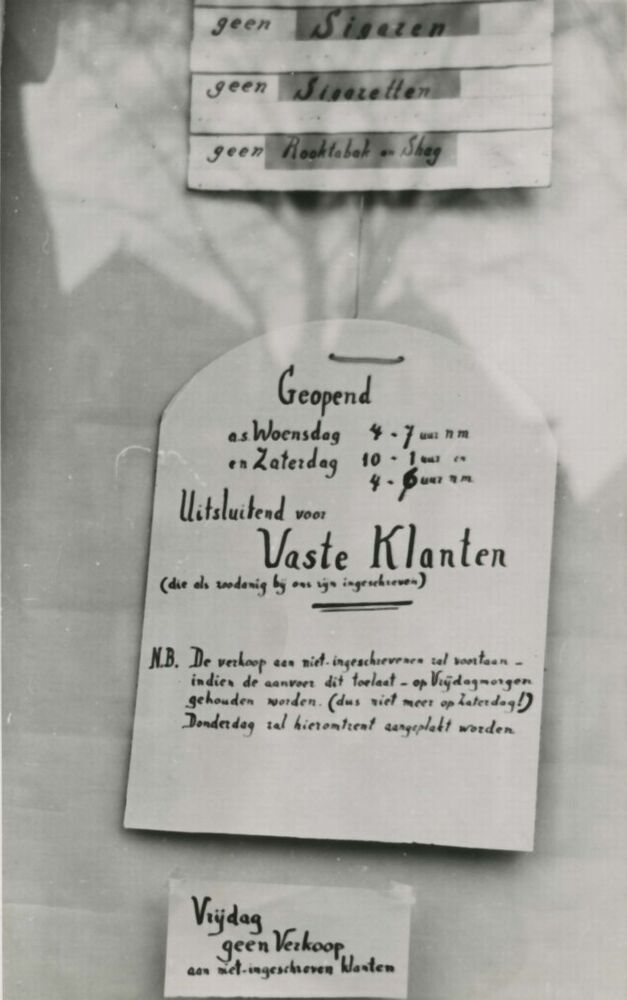 geen Sigaren
geen Sigaretten
geen Rooktabak en Shag
Geopend
a.s. Woensdag 4 - 7 uur nm
en Zaterdag 10 - 1 uur en
4 - 6 uur nm.
Uitsluitend voor
Vaste Klanten
(die als zoodanig bij ons zijn ingeschreven)
N.B. De verkoop aan niet-ingeschrevenen zal voortaan -
indien de aanvoer dit toelaat - op Vrijdagmorgen
gehouden worden. (dus niet meer op Zaterdag!)
Donderdag zal hieromtrent aangeplakt worden.
Vrijdag
geen Verkoop
aan niet-ingeschreven klanten